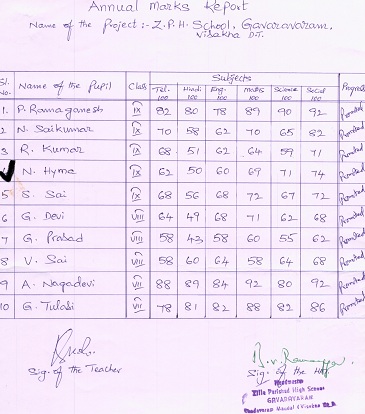 Annual Marks Report
Name of the Project :- Z.P.H. School, Gavaravaram,
Visakha DT.
Subjects
Sl. No. Name of the Pupil Class Tel. 100 Hindi 100 Eng. 100 Maths 100 Science 100 Social 100 Progress
1. P. Ramaganesh IX 92 80 78 89 90 92 Promoted
2 N. Saikumar IX 70 58 62 70 65 82 Promoted
3 R. Kumar IX 68 51 62 64 59 71 Promoted
N. Hyma IX 62 50 60 69 71 74 Promoted
5 S. Sai IX 68 56 68 72 67 72 Promoted
6 G. Devi VIII 64 49 68 71 62 68 Promoted
7 G. Prasad VIII 58 43 58 60 55 62 Promoted
8 V. Sai VII 58 60 64 58 64 68 Promoted
9 A. Nagadevi VII 88 89 84 92 80 92 Promoted
10 G. Tulasi VII 78 81 82 88 82 86 Promoted
Sig. of the Teacher
Sig. of the HM
Zilla Parishad High School
GAVARAVARAM